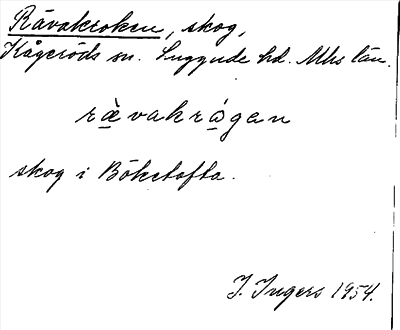 Rävakroken, skog,
Kågeröds sn. Luggude hd. Mhs län.
rä̀vakrá̱gen
skog i Böketofta.
J. Ingers 1954.